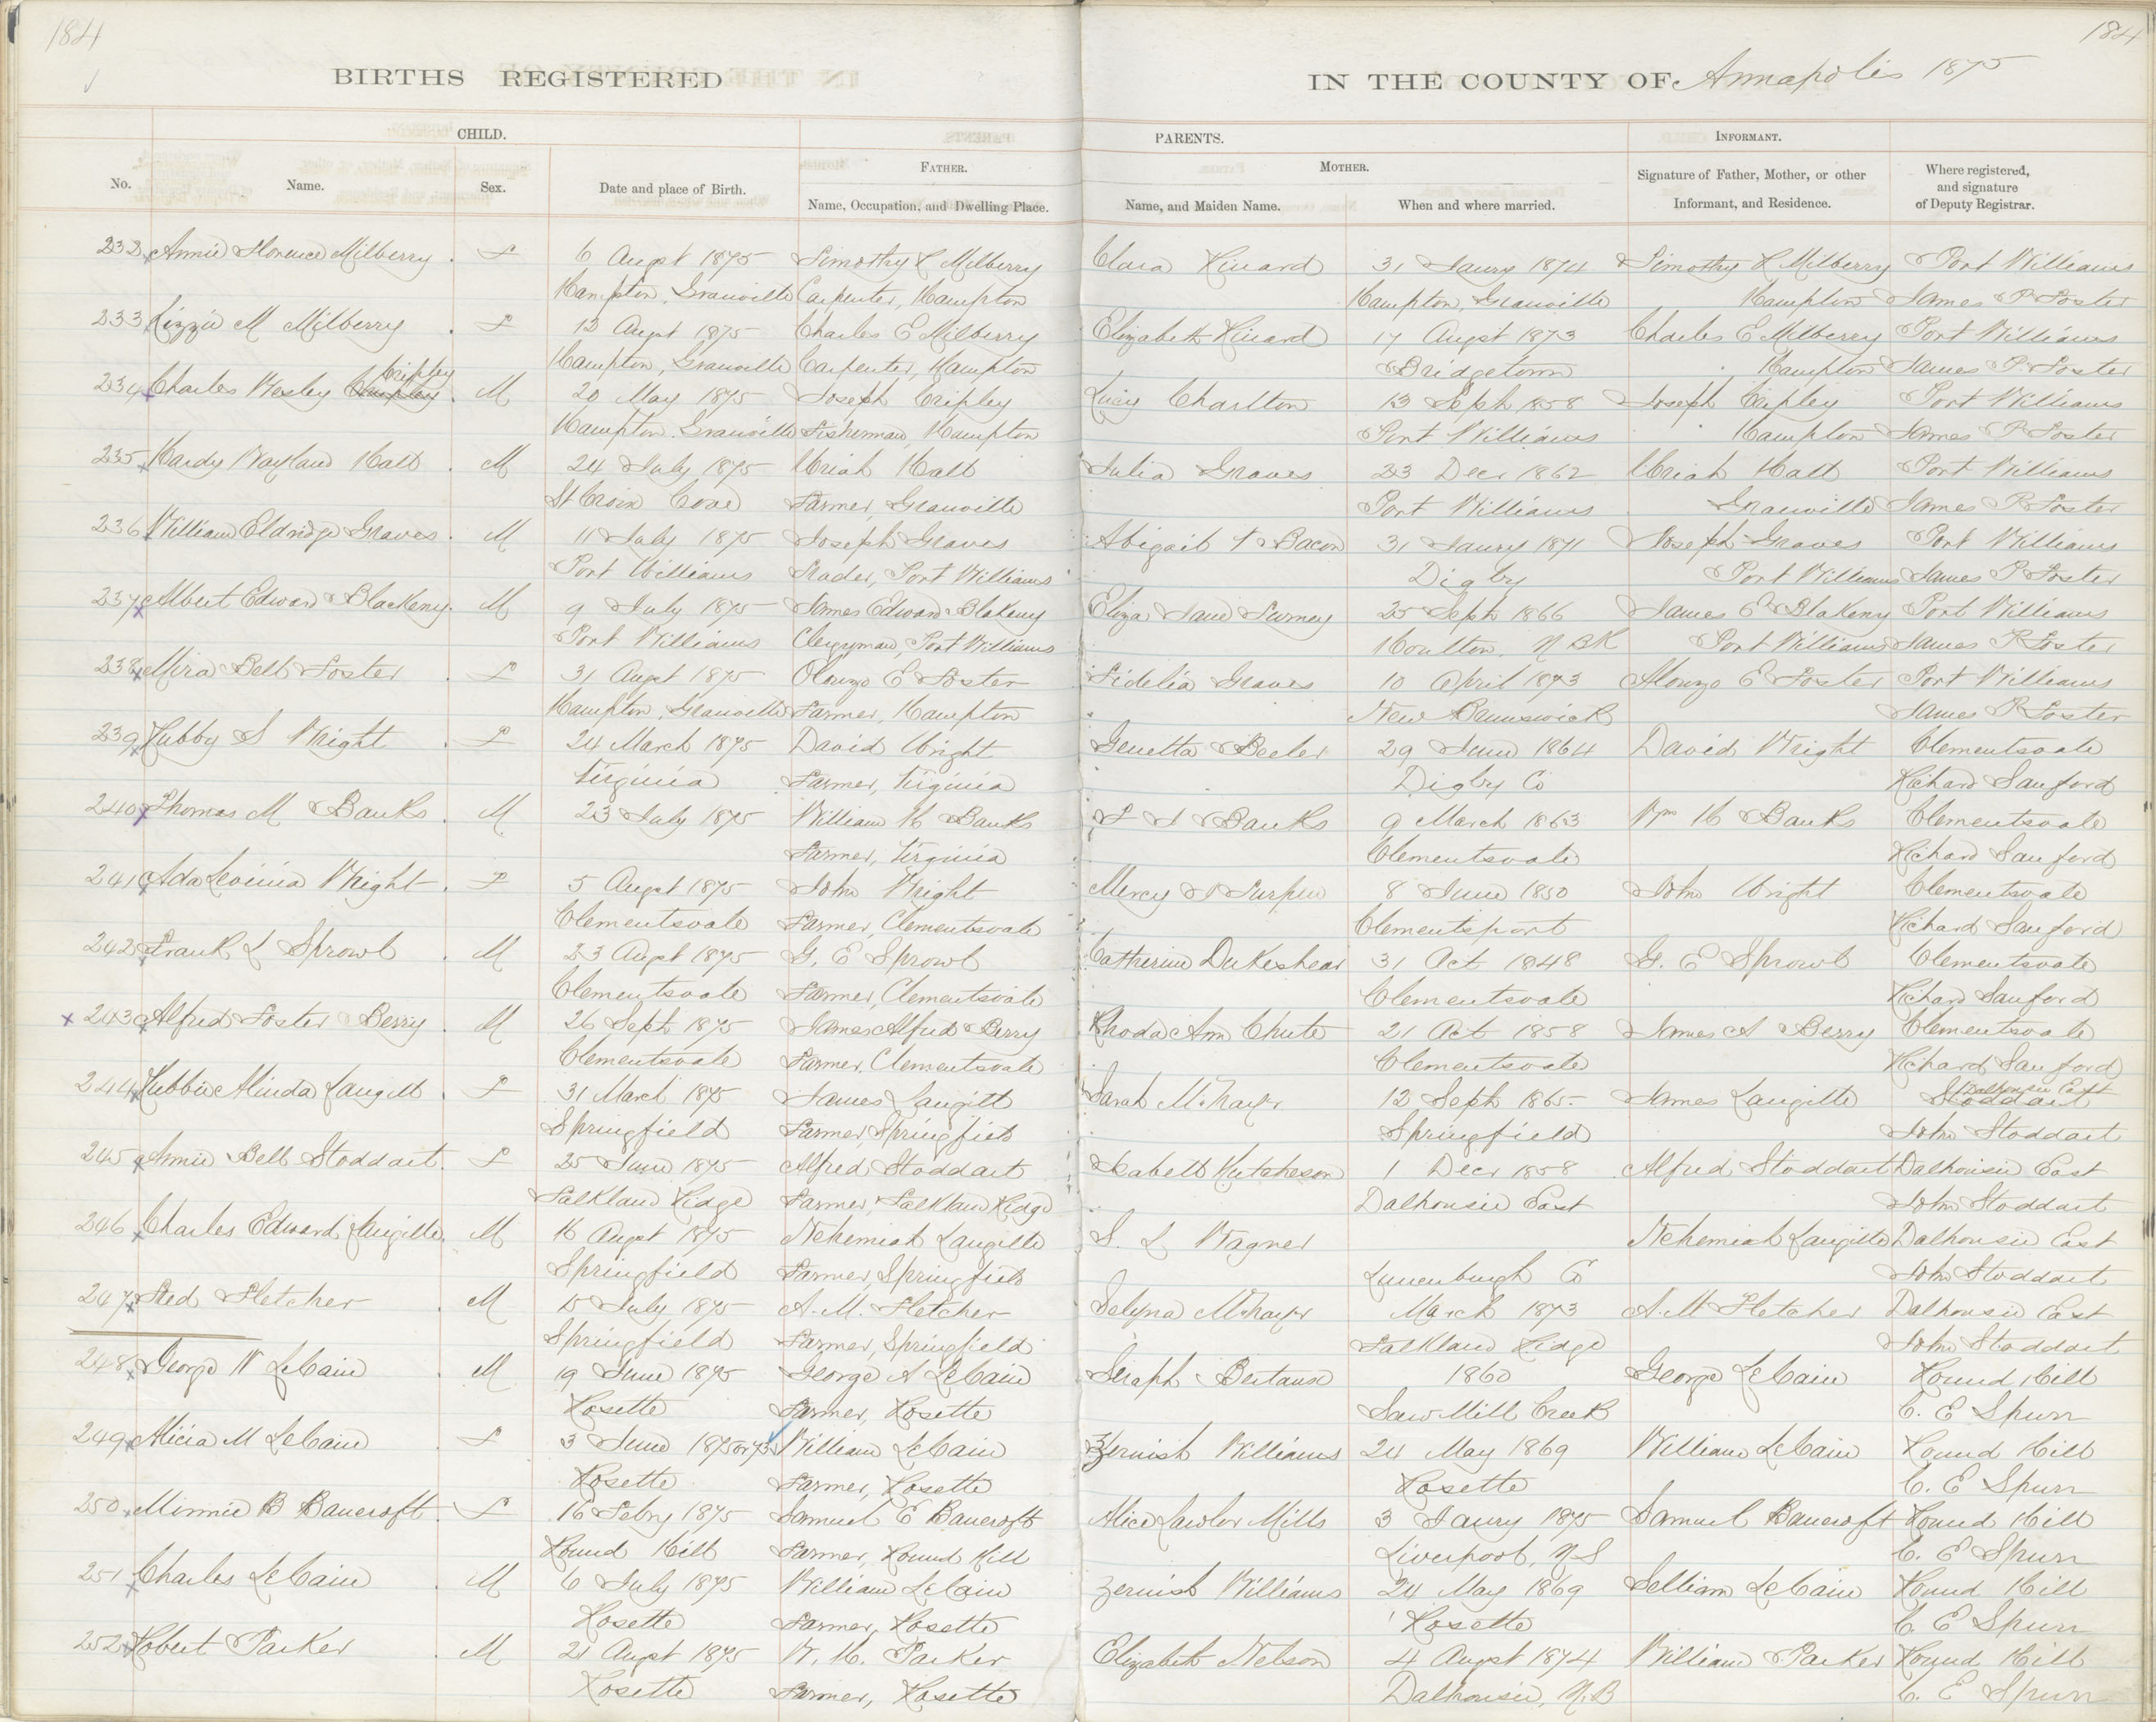 184
184
BIRTHS REGISTERED
IN THE COUNTY OF Annapolis 1875
CHILD.
PARENTS.
INFORMANT.
No.
Name.
Sex.
Date and place of Birth.
FATHER.
Name, Occupation, and Dwelling Place.
MOTHER.
Name, and Maiden Name.
When and where married.
Signature of Father, Mother, or other
Informant, and Residence.
Where registered,
and signature
of Deputy Registrar.
232 Annie Florence Milberry F 6 Augst 1875 Timothy R Milberry Clara Hinard 31 Jaury 1874 Timothy R Milberry Port Williams
Hampton, Granville Carpenter, Hampton Hampton, Granville Hampton James P Foster
233 Lizzie M Milberry F 12 Augst 1875 Charles E Milberry Elizabeth Hinard 17 Augst 1873 Charles E Milberry Port Williams
Hampton, Granville Carpenter, Hampton Bridgetown Hampton James P Foster
234 Charles Wesley Cripley M 20 May 1875 Joseph Cripley Lucy Charlton 13 Sept 1858 Joseph Cripley Port Williams
Hampton, Granville Fisherman, Hampton Port Williams Hampton James P Foster
235 Hardy Wayland Hall M 24 July 1875 Uriah Hall Julia Graves 23 Decr 1862 Uriah Hall Port Williams
St Croix Cove Farmer, Granville Port Williams Granville James P Foster
236 William Eldridge Graves M 11 July 1875 Joseph Graves Abigail T Bacon 31 Jaury 1871 Joseph Graves Port Williams
Port Williams Trader, Port Williams Digby Port Williams James P Foster
237 Albert Edward Blackeny M 9 July 1875 James Edward Blakeny Eliza Jane Turney 25 Sept 1866 James E Blakeny Port Williams
Port Williams Clergyman, Port Williams Houlton, N BK Port Williams James P Foster
238 Mira Bell Foster F 31 Augt 1875 Olonzo E Foster Fidelia Graves 10 April 1873 Alonzo E Foster Port Williams
Hampton, Granville Farmer, Hampton New Brunswick James P Foster
239 Lubby S Wright F 24 March 1875 David Wright Genetta Beeler 29 June 1864 David Wright Clementsvale
Virginia Farmer, Virginia Digby Co Richard Sanford
240 Thomas M Banks M 23 July 1875 William H Banks F S Banks 9 March 1863 Wm H Banks Clementsvale
Farmer, Virginia Clementsvale Richard Sanford
241 Ada Levinia Wright F 5 Augst 1875 John Wright Mercy Turpin 8 June 1850 John Wright Clementsvale
Clementsvale Farmer, Clementsvale Clementsport Richard Sanford
242 Frank L Sprowl M 23 Augst 1875 G. E Sprowl Catherine Dukeshear 31 Oct 1848 G. E Sprowl Clementsvale
Clementsvale Farmer, Clementsvale Clementsvale Richard Sanford
243 Alfred Foster Berry M 26 Sept 1875 James Alfred Berry Rhoda Ann Chute 21 Oct 1858 James A Berry Clementsvale
Clementsvale Farmer, Clementsvale Clementsvale Richard Sanford
244 Lubbie Alinda Langill F 31 March 1875 James Langill Sarah McNayr 12 Sept 1865 James Langille Dalhousie East
Springfield Farmer, Springfield Springfield John Stoddart
245 Annie Bell Stoddart F 25 June 1875 Alfred Stoddart Isabell Hutcheson 1 Decr 1858 Alfred Stoddart Dalhousie East
Falkland Ridge Farmer, Falkland Ridge Dalhousie East John Stoddart
246 Charles Edward Langille M 16 Augst 1875 Nehemiah Langille S. L Wagner Nehemiah Langille Dalhousie East
Springfield Farmer, Springfield Lunenburgh Co John Stoddart
247 Fred Fletcher M 15 July 1875 A. M. Fletcher Selyna McNayr March 1873 A. M Fletcher Dalhousie East
Springfield Farmer, Springfield Falkland Ridge John Stoddart
248 George W LeCain M 19 June 1875 George A LeCain Seraph Bertaux 1860 George LeCain Round Hill
Rosette Farmer, Rosette Saw Mill Creek C. E Spurr
249 Alicia M LeCain F 3 June 1875 or 73 William LeCain Zeruiah Williams 24 May 1869 William LeCain Round Hill
Rosette Farmer, Rosette Rosette C. E Spurr
250 Minnie B Bancroft F 16 Febry 1875 Samuel E Bancroft Alice Lawlor Mills 3 Jaury 1875 Samuel Bancroft Round Hill
Round Hill Farmer, Round Hill Liverpool, N S C. E Spurr
251 Charles LeCain M 6 July 1875 William LeCain Zeruiah Williams 24 May 1869 William LeCain Round Hill
Rosette Farmer, Rosette Rosette C. E Spurr
252 Robert Parker M 21 Augst 1875 W. H. Parker Elizabeth Nelson 4 Augst 1874 William Parker Round Hill
Rosette Farmer, Rosette Dalhousie, N.B C. E Spurr